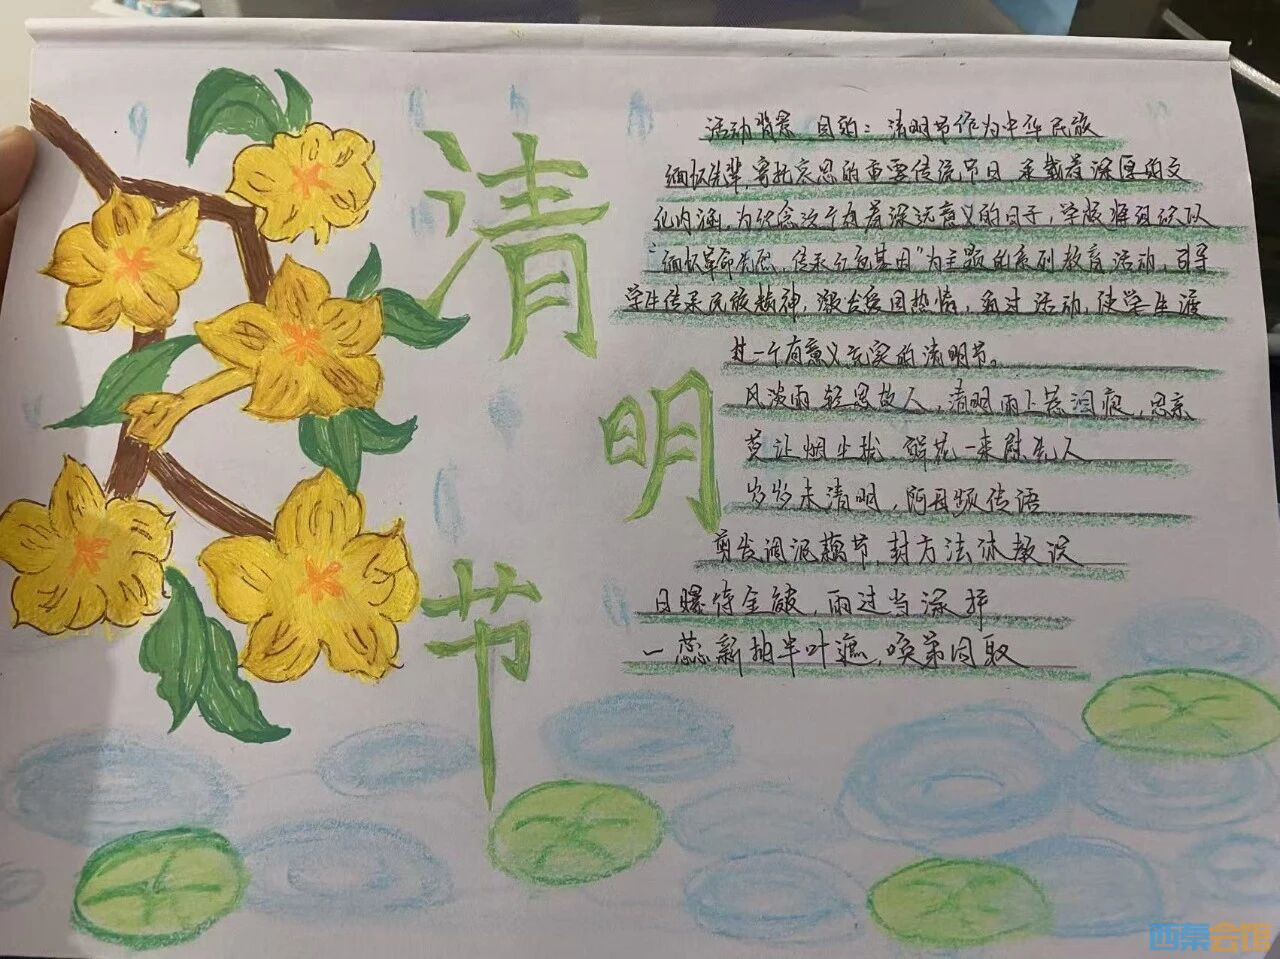 清
明
节
活动背景 目的：清明节作为中华民族
缅怀先辈，寄托哀思的重要传统节日 承载着深厚的文
化内涵，为纪念这个有着深远意义的日子，学校将组织队
“缅怀革命先烈，传承红色基因”为主题的系列教育活动，引导
学生传承民族精神，激发爱国热情，通过活动，使学生渡
过一个有意义充实的清明节。
风淡雨轻思故人，清明雨上落泪痕，思亲
莫让烟尘扰，鲜花一来慰先人
岁岁未清明，阿母频传语
剪发调泥藕节，封方法休极误
日曝待全皴，雨过当深坪
一蕊新抽半叶遮，唤弟同取
西秦会馆